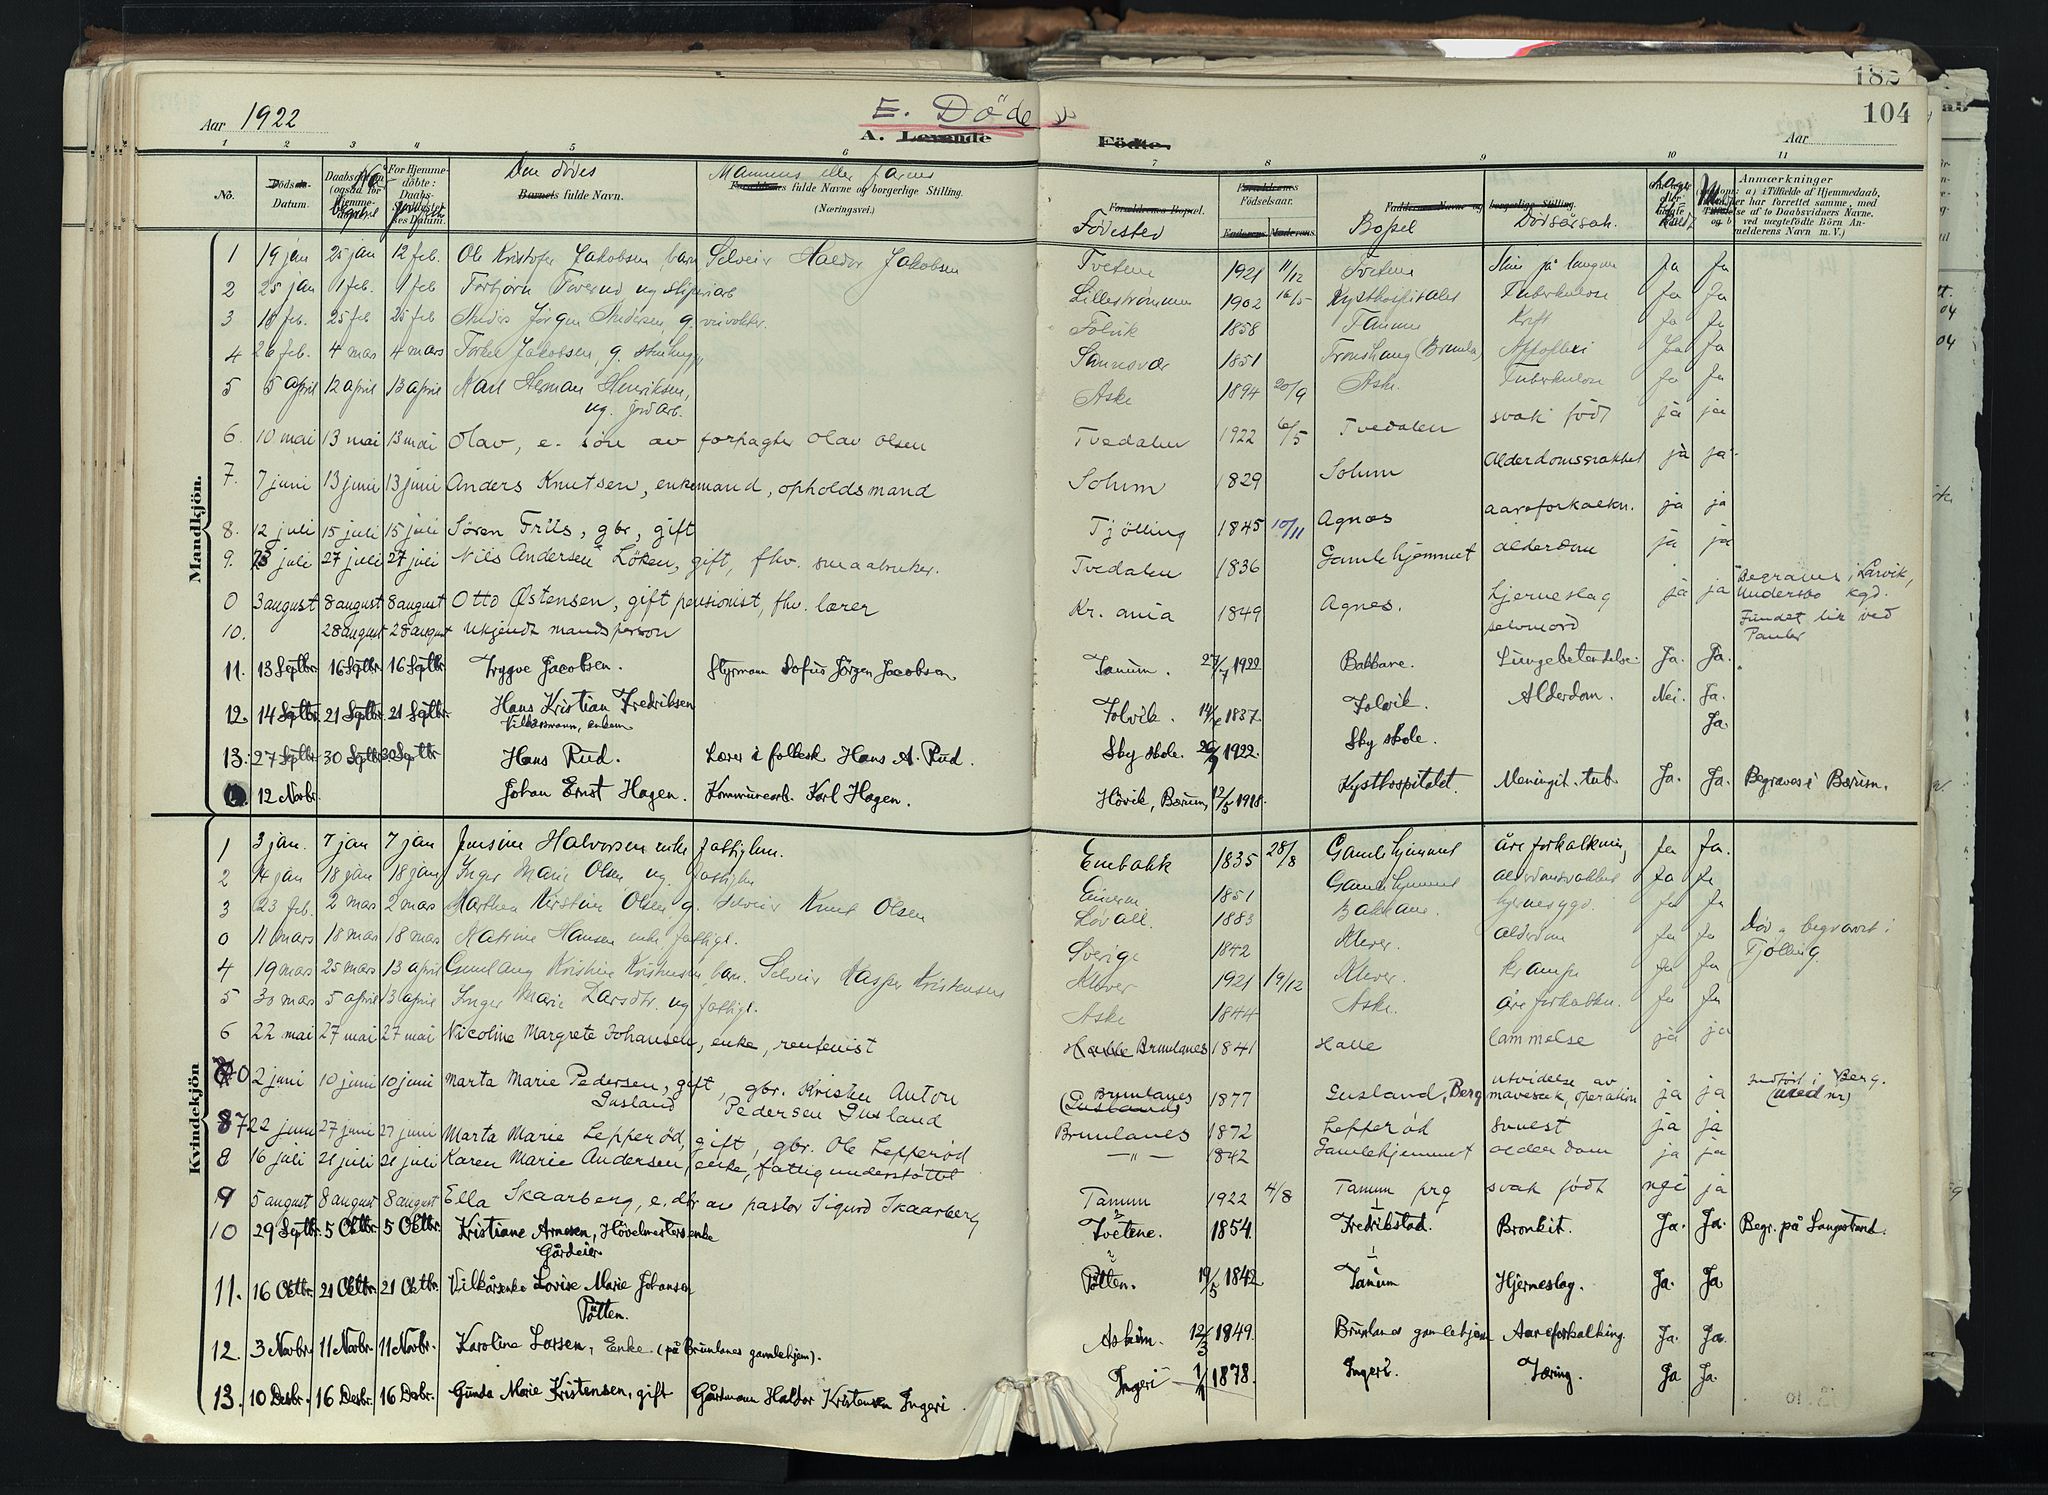 185
104
Aar 1922
E. Döde
A. Levende
Födte.
Aar
1 2 3 4 5 6 7 8 9 10 11
No. Döds Datum. Daabsdatum (ogsaa for Hjemmedöbte) For Hjemmedöbte: Daabs Stadfæstelses Datum. Den dödes Barnets fulde Navn. Mannens eller farens Forældrenes fulde Navne og borgerlige Stilling. (Næringsvei.) Forældrenes Bopæl. Födested Forældrenes Födselsaar. Faderens Moderens Faddernes Navne og borgerlige Stilling. Bopæl Dödsårsak. Anmærkninger
Mandkjön.
1 19 jan 25 jan 12 feb. Ole Kristofer Jakobsen, barn Selveier Haldor Jakobsen Tvetene 1921 11/12 Tvetene Ja Ja
2 25 jan 1 feb. 1 feb Torbjörn Tverud ug Lilleströmmen 1902 16/5 Kysthospitalet Tuberkulose Ja Ja
3 18 feb. 25 feb 25 feb Anders Jörgen Andersen, g. Folvik 1858 Tanum Kreft Ja Ja
4 26 feb. 4 mas 4 mars Torkel Jakobsen, g. stenhugger Sannsvær 1851 Tronshaug (Brunla) Apoplexi Ja Ja
5 5 april 12 april 13 april Karl Herman Henriksen, Aske 1894 20/9 Aske. Tuberkulose Ja Ja
ug. jordarb.
6. 10 mai 13 mai 13 mai Olav, e. sön av forpagter Olav Olsen Tvedalen 1922 6/5 Tvedalen svak födt ja ja
7. 7 juni 13 juni 13 juni Anders Knutsen, enkemand, opholdsmand Solum 1829 Solum Alderdomssvakhet ja ja.
8. 12 juli 15 juli 15 juli Sören Friis, gbr, gift Tjölling 1845 10/11 Agnes aareforkalkn. ja ja
9. 23 juli 27 juli 27 juli Nils Andersen Löken, gift, fhv. smaabruker. Tvedalen 1836 Gamlehjemmet alderdom ja ja
0 3 august 8 august 8 august Otto Østensen, gift pensionist, fhv. lærer Kr.ania 1849 Agnes. hjerneslag ja ja Begraves i Larvik, Undersbo kgd.
10. 28 august 28 august Ukjendt mandsperson selvmord Fundet lik ved Pauler
11. 13 Septbr. 16 Septbr. 16 Septbr. Trygve Jacobsen. Styrmann Dofus Jörgen Jacobsen Tanum. 27/7 1922 Bakkane. Lungebetendelse. Ja. Ja.
12. 14 Septbr. 21 Septbr. 21 Septbr. Hans Kristian Fredriksen Folvik. 14/ 1837. Folvik. Alderdom. Nei. Ja.
Vilkårsmann, enkem.
13. 27 Septbr. 30 Septbr. 30 Septbr. Hans Rud. Lærer i folkesk. Hans A. Rud. Sky skole. 26/9 1922. Sky skole. Ja.
0. 12 Novbr. Johan Ernst Hagen. Kommunearb. Karl Hagen. Hövik, Bærum, 12/5 1918. Kysthospitalet. Meningit. tub. Ja. Ja. Begraves i Bærum.
Kvindekjön
1 3 jan. 7 jan 7 jan Jensine Halvorsen enke fattiglem. Embakk 1835 28/8 Gamlehjemmet Åreforkalkning Ja Ja.
2 14 jan 18 jan 18 jan Inger Marie Olsen, ug. fattiglem 1851 Gamlehjemmet alderdomsvakhet Ja Ja
3 23 feb. 2 mas 2 mas Marthea Kirstine Olsen g. Selveier Knut Olsen Lövall 1883 Bakkane. Ja Ja
0 11 mars 18 mas 18 mas Katrine Hansen enke, fattigl. Sverige 1842 Klever. alderdom Ja Ja Död og begravet i Tjölling.
4 19 mas 25 mars 13 april Gunlaug Kristine Kristensen, barn. Selveier Kasper Kristensen Klever 1921 19/12 Klever. krampe Ja Ja
5 30 mas 5 april 13 april Inger Marie Larsdtr. ug fattigl. Aske 1844 Aske. Åreforkalkn. Ja Ja
6 22 mai 27 mai 27 mai Nicoline Margrete Johansen, enke, rentenist Brunlanes 1841 Halle lammelse ja ja
0 2 juni 10 juni 10 juni Marta Marie Pedersen, gift, gbr. Kristen Anton Brunlanes 1877 Gusland, Berg utvidelse av mavesæk, operation ja ja Indført i Berg. (uten nr)
Gusland Pedersen Gusland (Gusland)
7 22 juni 27 juni 27 juni Marta Marie Lepperöd, gift, gbr. Ole Lepperöd Brunlanes 1872 Lepperöd svulst ja ja
8 16 juli 21 juli 21 juli Karen Marie Andersen, enke, fattigunderstöttet — " — 1842 Gamlehjemmet alderdom ja ja
9 5 august 8 august 8 august Ella Skaarberg, e. dtr av pastor Sigurd Skaarberg Tanum 1922 4/8 Tanum prg svak födt nei ja
10 29 Septbr. 5 Oktbr. 5 Oktbr. Kristiane Arnesen, Hövelmesters enke Tvetene. 1854. Fredrikstad. Bronkit. Ja. Ja. Begr. på Langestrand.
Gårdeier
11. 16 Oktbr. 21 Oktbr. 21 Oktbr. Vilkårsenke Lovise Marie Johansen Pötten. 19/5 1842 Tanum Hjerneslag. Ja. Ja
Pötten.
12. 3 Novbr. 11 Novbr. 11 Novbr. Karoline Larsen, Enke. (på Brunlanes gamlehjem). Askim. 12/3 1849. Brunlanes gamlehjem Aareforkalking. Ja. Ja.
13. 10 Desbr. 16 Desbr. 16 Desbr. Gunda Marie Kristensen, gift Gårdmann Haldor Kristensen Ingeri. Ingeri 1/1 1878. Ingeri. Tæring. Ja Ja.